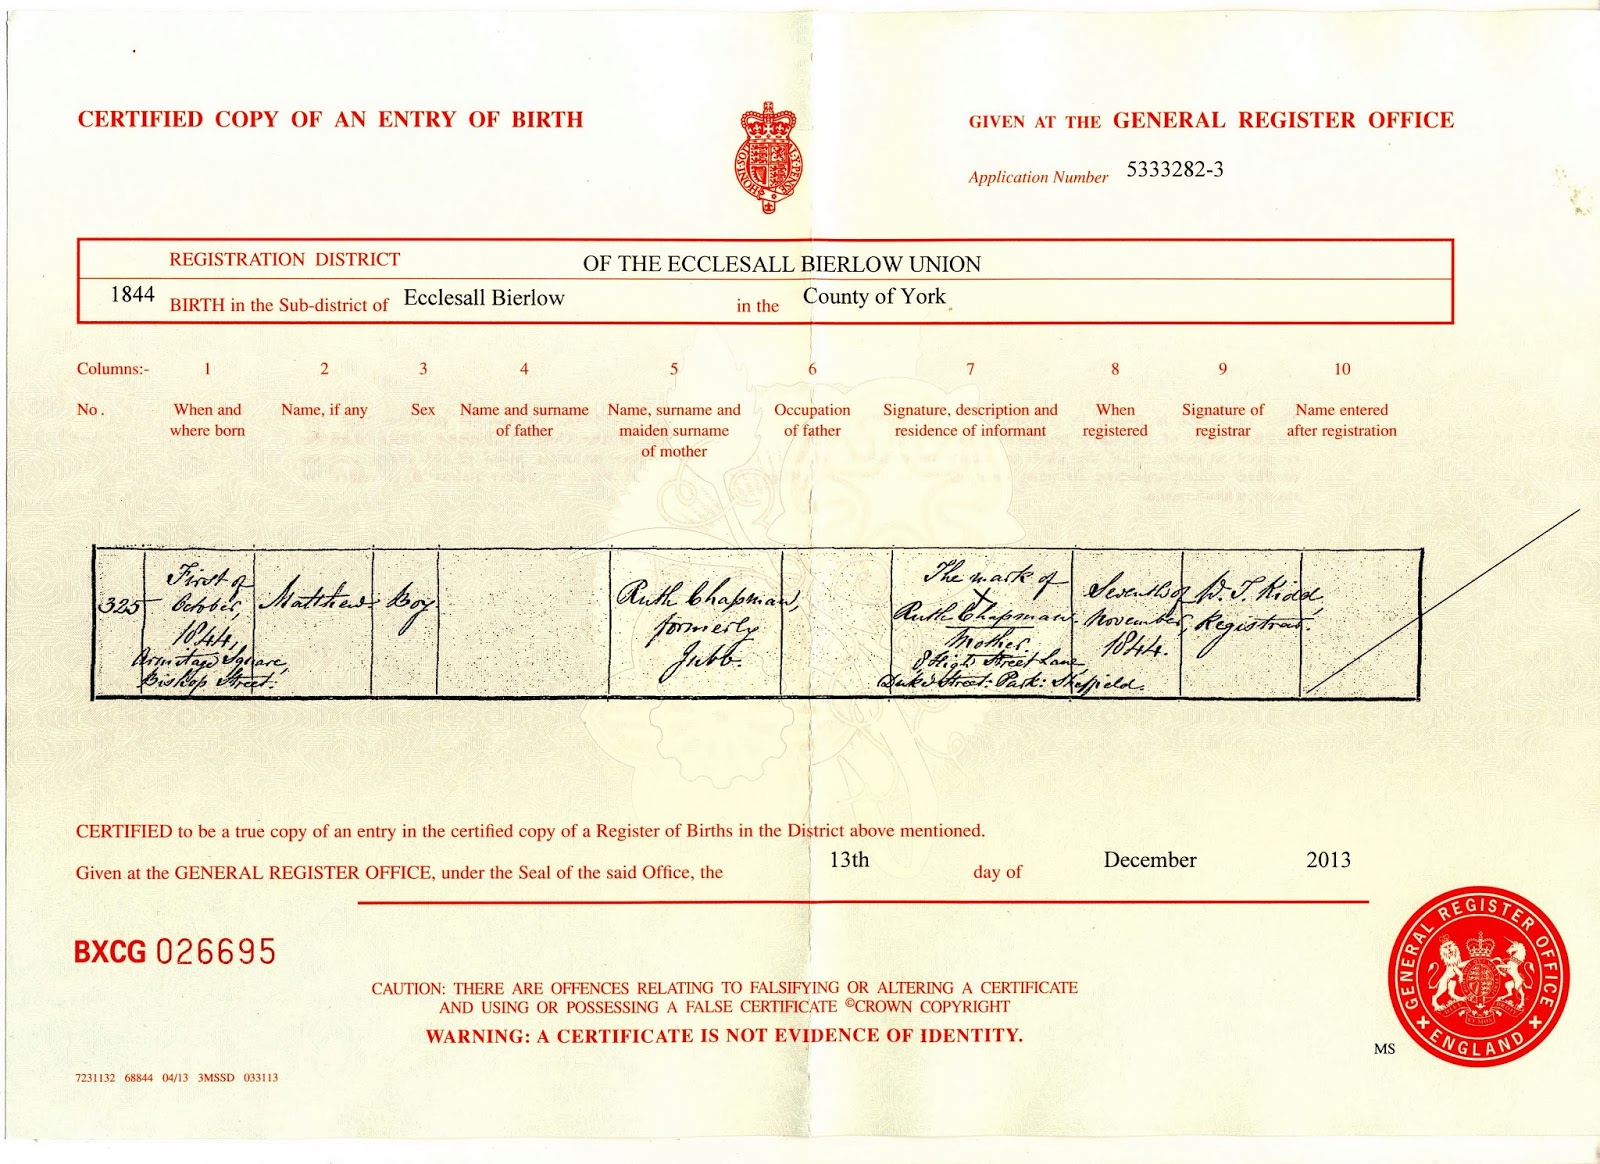 CERTIFIED COPY OF AN ENTRY OF BIRTH
GIVEN AT THE GENERAL REGISTER OFFICE
Application Number 5333282-3
REGISTRATION DISTRICT OF THE ECCLESALL BIERLOW UNION
1844 BIRTH in the Sub-district of Ecclesall Bierlow in the County of York
Columns:- 1 2 3 4 5 6 7 8 9 10
No. When and where born
Name, if any
Sex
Name and surname of father
Name, surname and maiden surname of mother
Occupation of father
Signature, description and residence of informant
When registered
Signature of registrar
Name entered after registration
325
First of
October,
1844,
Armitage Square,
Bishop Street:
Matthew
Boy
Ruth Chapman,
formerly
Jubb.
The mark of
X
Ruth Chapman.
Mother.
8 High Street Lane,
Duke Street: Park: Sheffield.
Seventh of
November,
1844.
W. T. Kidd,
Registrar.
CERTIFIED to be a true copy of an entry in the certified copy of a Register of Births in the District above mentioned.
Given at the GENERAL REGISTER OFFICE, under the Seal of the said Office, the 13th day of December 2013
BXCG 026695
CAUTION: THERE ARE OFFENCES RELATING TO FALSIFYING OR ALTERING A CERTIFICATE
AND USING OR POSSESSING A FALSE CERTIFICATE ©CROWN COPYRIGHT
WARNING: A CERTIFICATE IS NOT EVIDENCE OF IDENTITY.
GENERAL REGISTER OFFICE
ENGLAND
MS
7231132 68844 04/13 3MSSD 033113